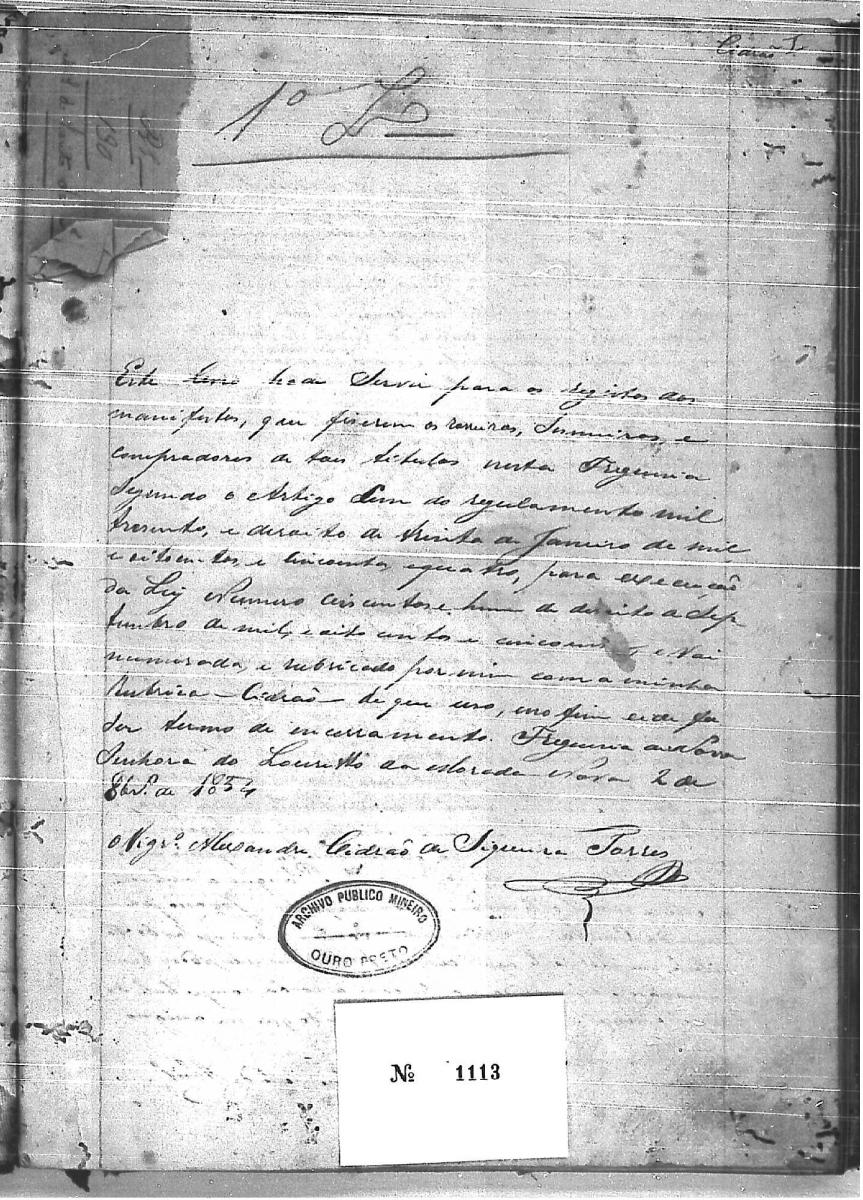 Cidrão 1
1º L
Este Livro hade Servir para os registos dos
manifestos, que fiserem os posseiros, Sesmeiros, e
compradores de taes titulos nesta Freguesia
Segundo o Artigo Cem do regulamento mil
tresento, e desoito de trinta de Janeiro de mil
e oito centos e cincoenta, equatro, para execução
da Ley Numero Ceis centos e hum de desoito de Sep
tembro de mil, e oito centos e cincoenta, e vai
numerado, e rubricado por mim com a minha
Rubrica - Cidrão - de que uso, e no fim eide fa
ser termo de incerramento. Freguesia de Nossa
Senhora do Louretto da Morada Nova 2 de
8br.º de 1854
O Vigr.º Alexandre Cidrão de Siqueira Torres
ARCHIVO PUBLICO MINEIRO
OURO PRETO
Nº 1113